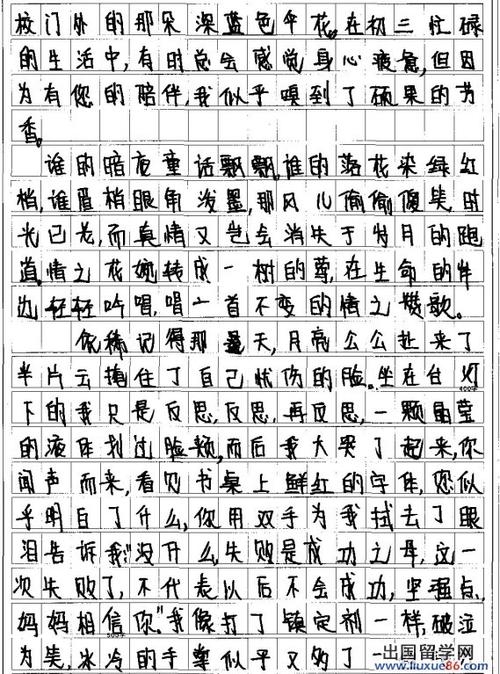 校门外的那朵深蓝色伞花。在初三忙碌
的生活中,有时总会感觉身心疲惫,但因
为有您的陪伴,我似乎嗅到了硕果的芳
香。
谁的暗夜童话飘飘,谁的落花染绿红
梢,谁眉梢眼角泼墨,那风儿偷偷傻笑,时
光已老,而真情又岂会消失于岁月的跑
道,情之花婉转成一树的尊,在生命的伴
边轻轻吟唱,唱一首不变的情之赞歌。
依稀记得那是天,月亮公公赴来了
半片云掩住了自己忧伤的脸。坐在台灯
400字
下的我只是反思,反思,再反思,一颗晶莹
的液体划过脸颊,而后我大哭了起来,你
闻声而来,看见书桌上鲜红的字体,您似
乎明白了什么,你用双手为我拭去了眼
泪告诉我"没什么,失败是成功之母,这一
次失败了,不代表以后不会成功,坚强点,
妈妈相信你"我像打了镇定剂一样,破泣
500字
为笑,冰冷的手掌似乎又多了一
出国留学网
www.liuxue86.com